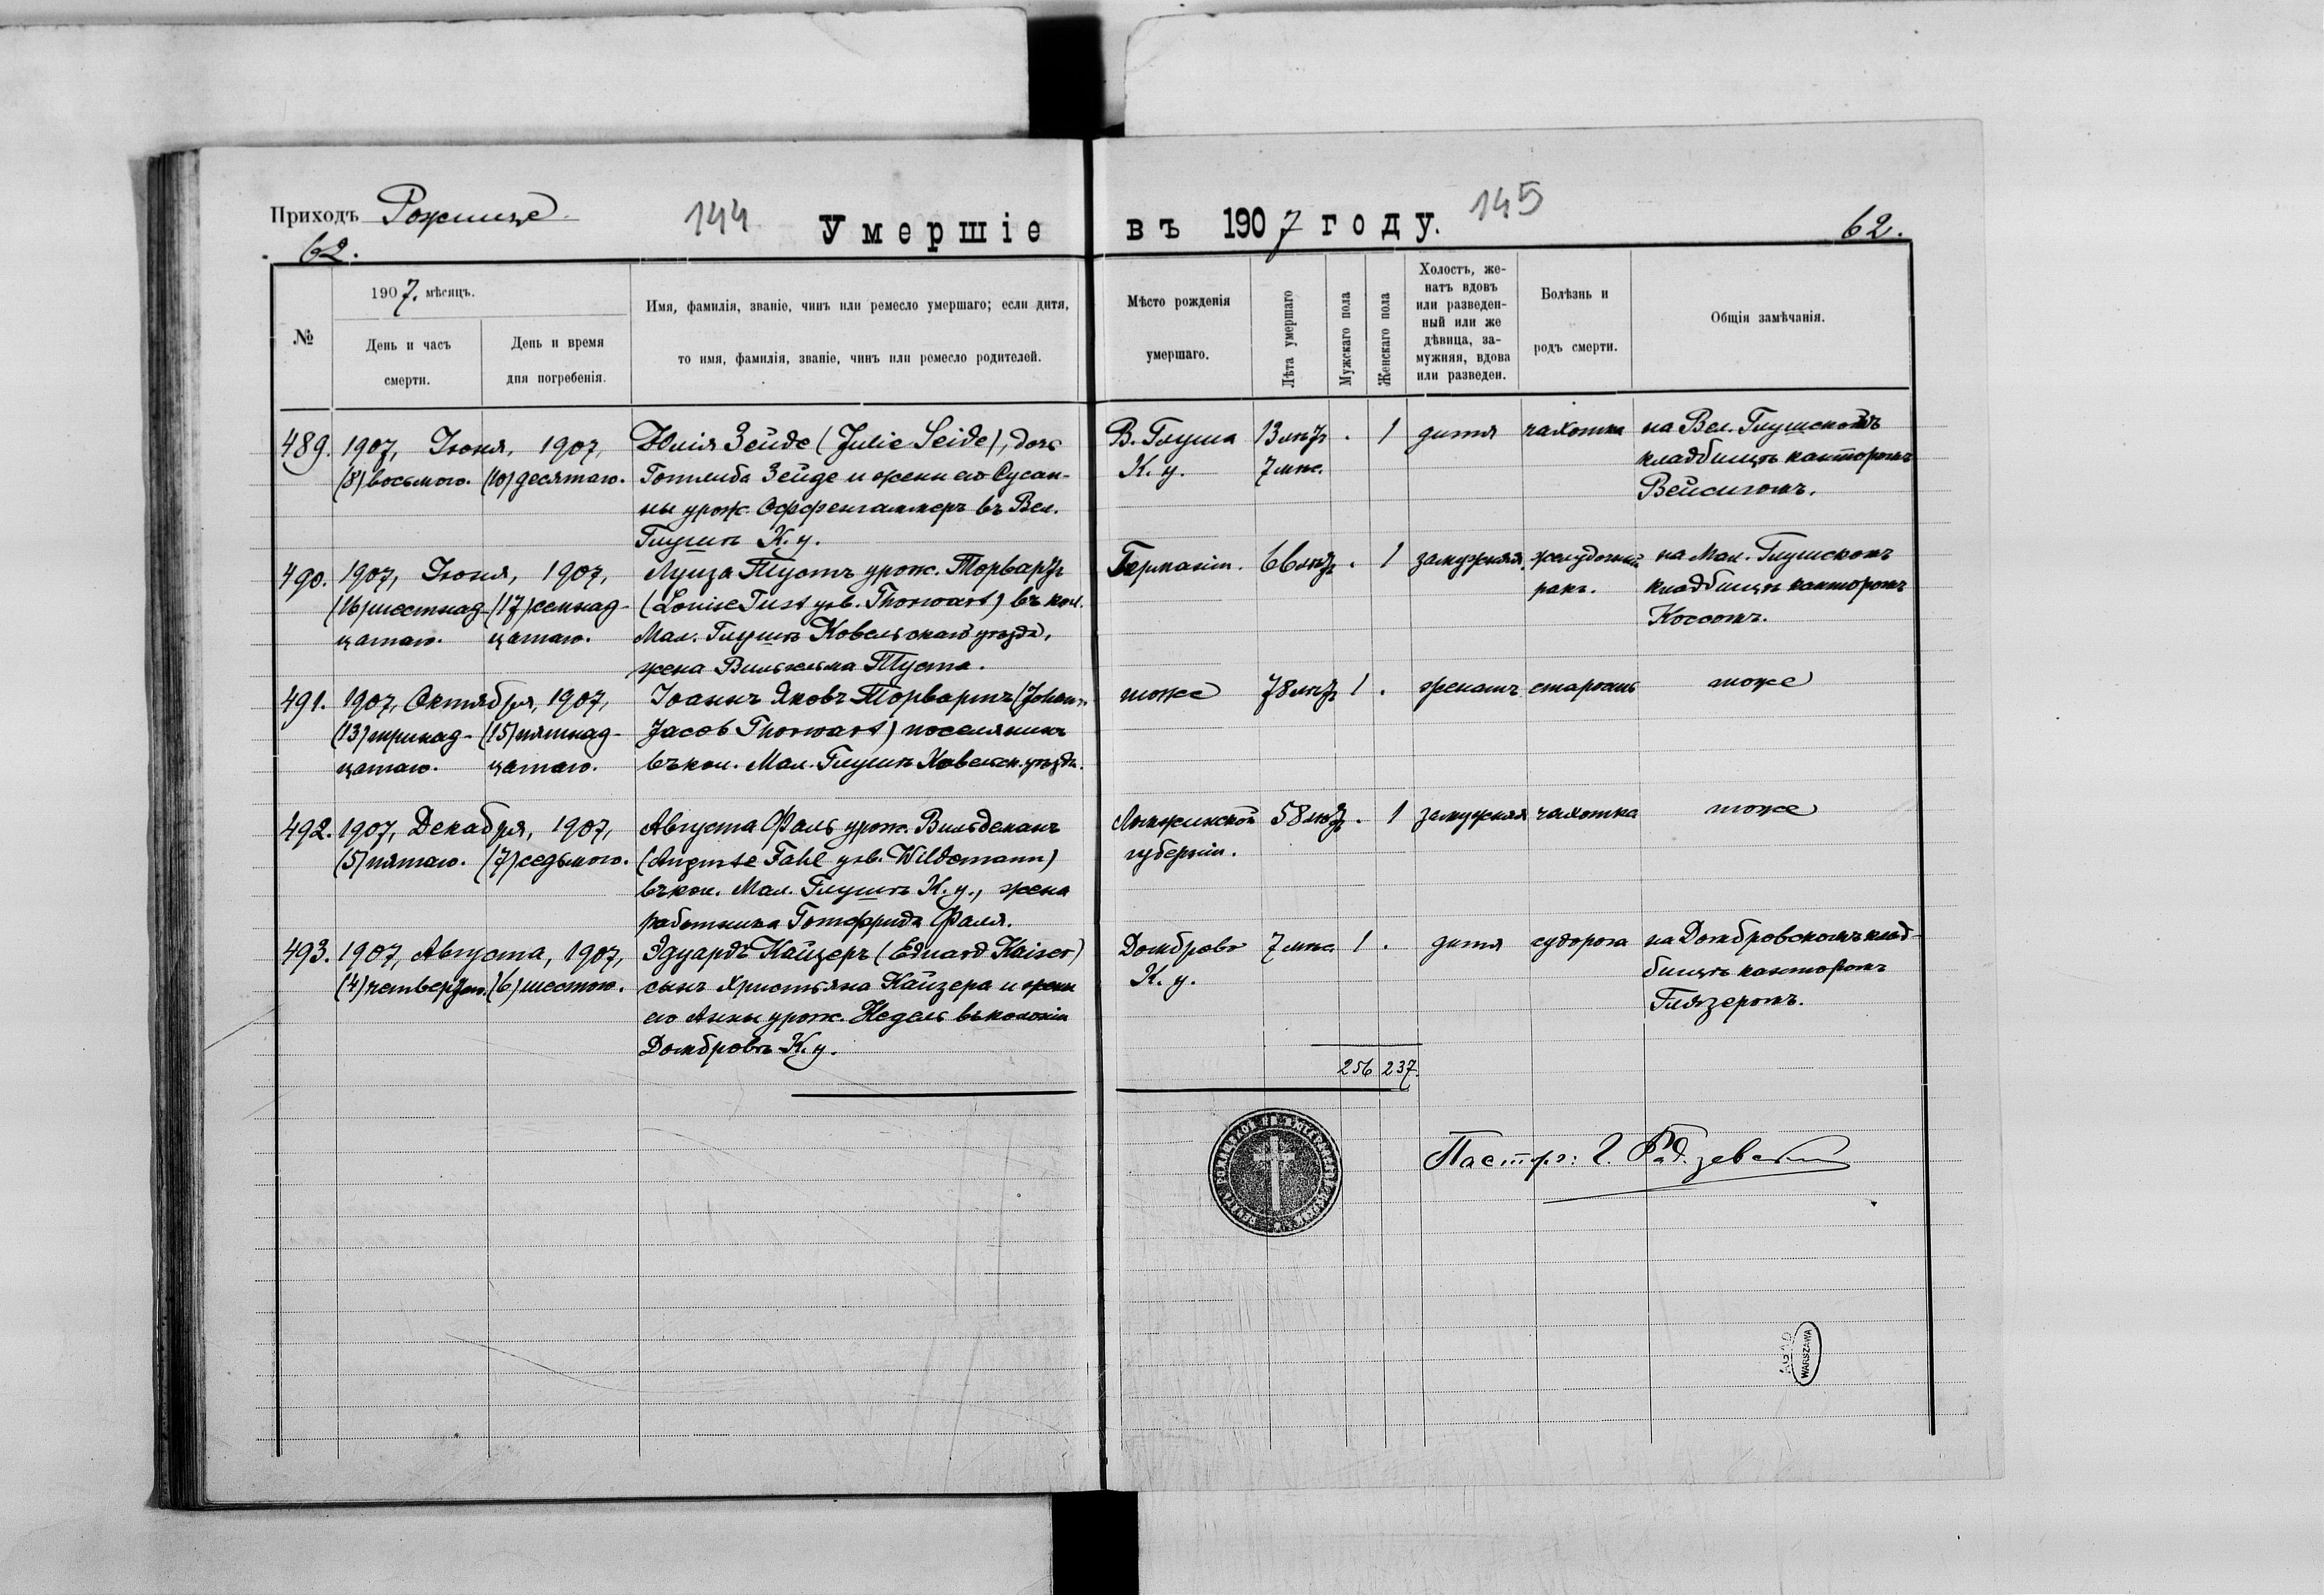 Приходъ Рожище
144
Умершіе
въ 1907 году.
145
62.
62.
№
1907. мѣсяцъ.
День и часъ смерти.
День и время дня погребенія.
Имя, фамилія, званіе, чинъ или ремесло умершаго; если дитя,
то имя, фамилія, званіе, чинъ или ремесло родителей.
Мѣсто рожденія
умершаго.
Лѣта умершаго
Мужскаго пола
Женскаго пола
Холостъ, же-
натъ вдовъ
или разведен-
ный или же
дѣвица, за-
мужняя, вдова
или разведен.
Болѣзнь и
родъ смерти.
Общія замѣчанія.
489. 1907, Іюня, 1907, Юлія Зейде (Julie Seide), дочь В. Глуша 13 лѣтъ . 1 дитя чахотка на Вел. Глушскомъ
(8) восьмого. (10) десятаго. Готлиба Зейде и жены его Сусан- К. у. 7 мѣс. кладбищѣ канторомъ
ны урож. Оффенгаммеръ въ Вел. Вейсигомъ.
Глушѣ К. у.
490. 1907, Іюня, 1907, Луиза Тустъ урож. Торвартъ Германіи. 66 лѣтъ . 1 замужняя желудочный на Мал. Глушскомъ
(16) шестнад- (17) семнад- (Louise Tust geb. Thorwart) въ кол. ракъ. кладбищѣ канторомъ
цатаго. цатаго. Мал. Глушѣ Ковельскаго уѣзда, Коссомъ.
жена Вильгельма Туста.
491. 1907, Октября, 1907, Іоаннъ Яковъ Торвартъ (Johann тоже 78 лѣтъ 1 . женатъ старость тоже
(13) тринад- (15) пятнад- Jacob Thorwart) поселянинъ
цатаго. цатаго. въ кол. Мал. Глушѣ Ковельск. уѣзда.
492. 1907, Декабря, 1907, Августа Фаль урож. Вильдеманъ Ломжинской 58 лѣтъ . 1 замужняя чахотка тоже
(5) пятаго. (7) седьмого. (Auguste Fahl geb. Wildemann) губерніи.
въ кол. Мал. Глушѣ К. у., жена
работника Готфрида Фаля.
493. 1907, Августа, 1907, Эдуардъ Кайзеръ (Eduard Kaiser) Домброво 7 мѣс. 1 . дитя судорога на Домбровскомъ клад-
(4) четвертаго. (6) шестого. сынъ Христьяна Кайзера и жены К. у. бищѣ канторомъ
его Анны урож. Недель въ колоніи Глязеромъ.
Домбровѣ К. у.
256 237.
Пасторъ:
AGAD
WARSZAWA